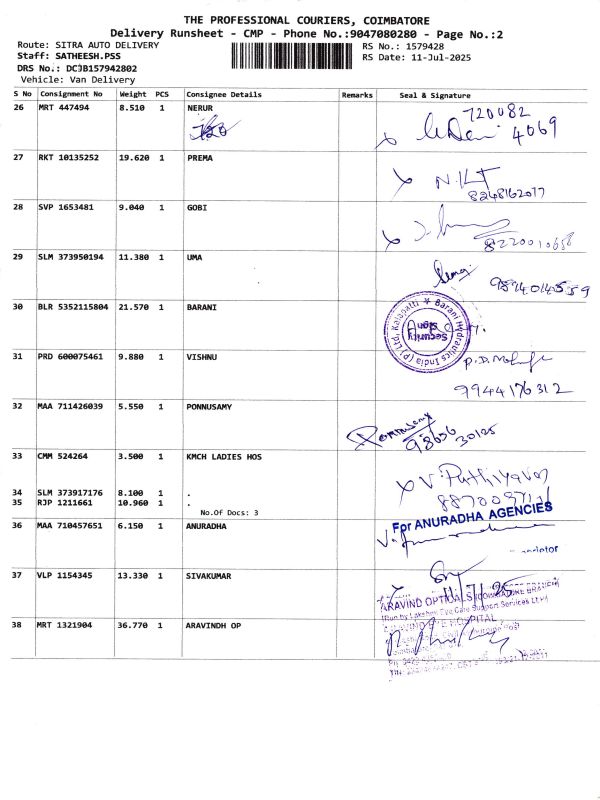 THE PROFESSIONAL COURIERS, COIMBATORE
Delivery Runsheet - CMP - Phone No.:9047080280 - Page No.:2
Route: SITRA AUTO DELIVERY
RS No.: 1579428
Staff: SATHEESH.PSS
RS Date: 11-Jul-2025
DRS No.: DCJB157942802
Vehicle: Van Delivery
S No Consignment No Weight PCS Consignee Details Remarks Seal & Signature
26 MRT 447494 8.510 1 NERUR
720082
4069
27 RKT 10135252 19.620 1 PREMA
8248162077
28 SVP 1653481 9.040 1 GOBI
29 SLM 373950194 11.380 1 UMA
30 BLR 5352115804 21.570 1 BARANI
Barani Hydraulics India (P) Ltd, Kalapatti
Security Sign
31 PRD 600075461 9.880 1 VISHNU
9944176312
32 MAA 711426039 5.550 1 PONNUSAMY
98656 30125
33 CMM 524264 3.500 1 KMCH LADIES HOS
34 SLM 373917176 8.100 1 .
35 RJP 1211661 10.960 1 .
No.Of Docs: 3
36 MAA 710457651 6.150 1 ANURADHA
For ANURADHA AGENCIES
37 VLP 1154345 13.330 1 SIVAKUMAR
38 MRT 1321904 36.770 1 ARAVINDH OP
ARAVIND OPTICALS (COIMBATORE BRANCH)